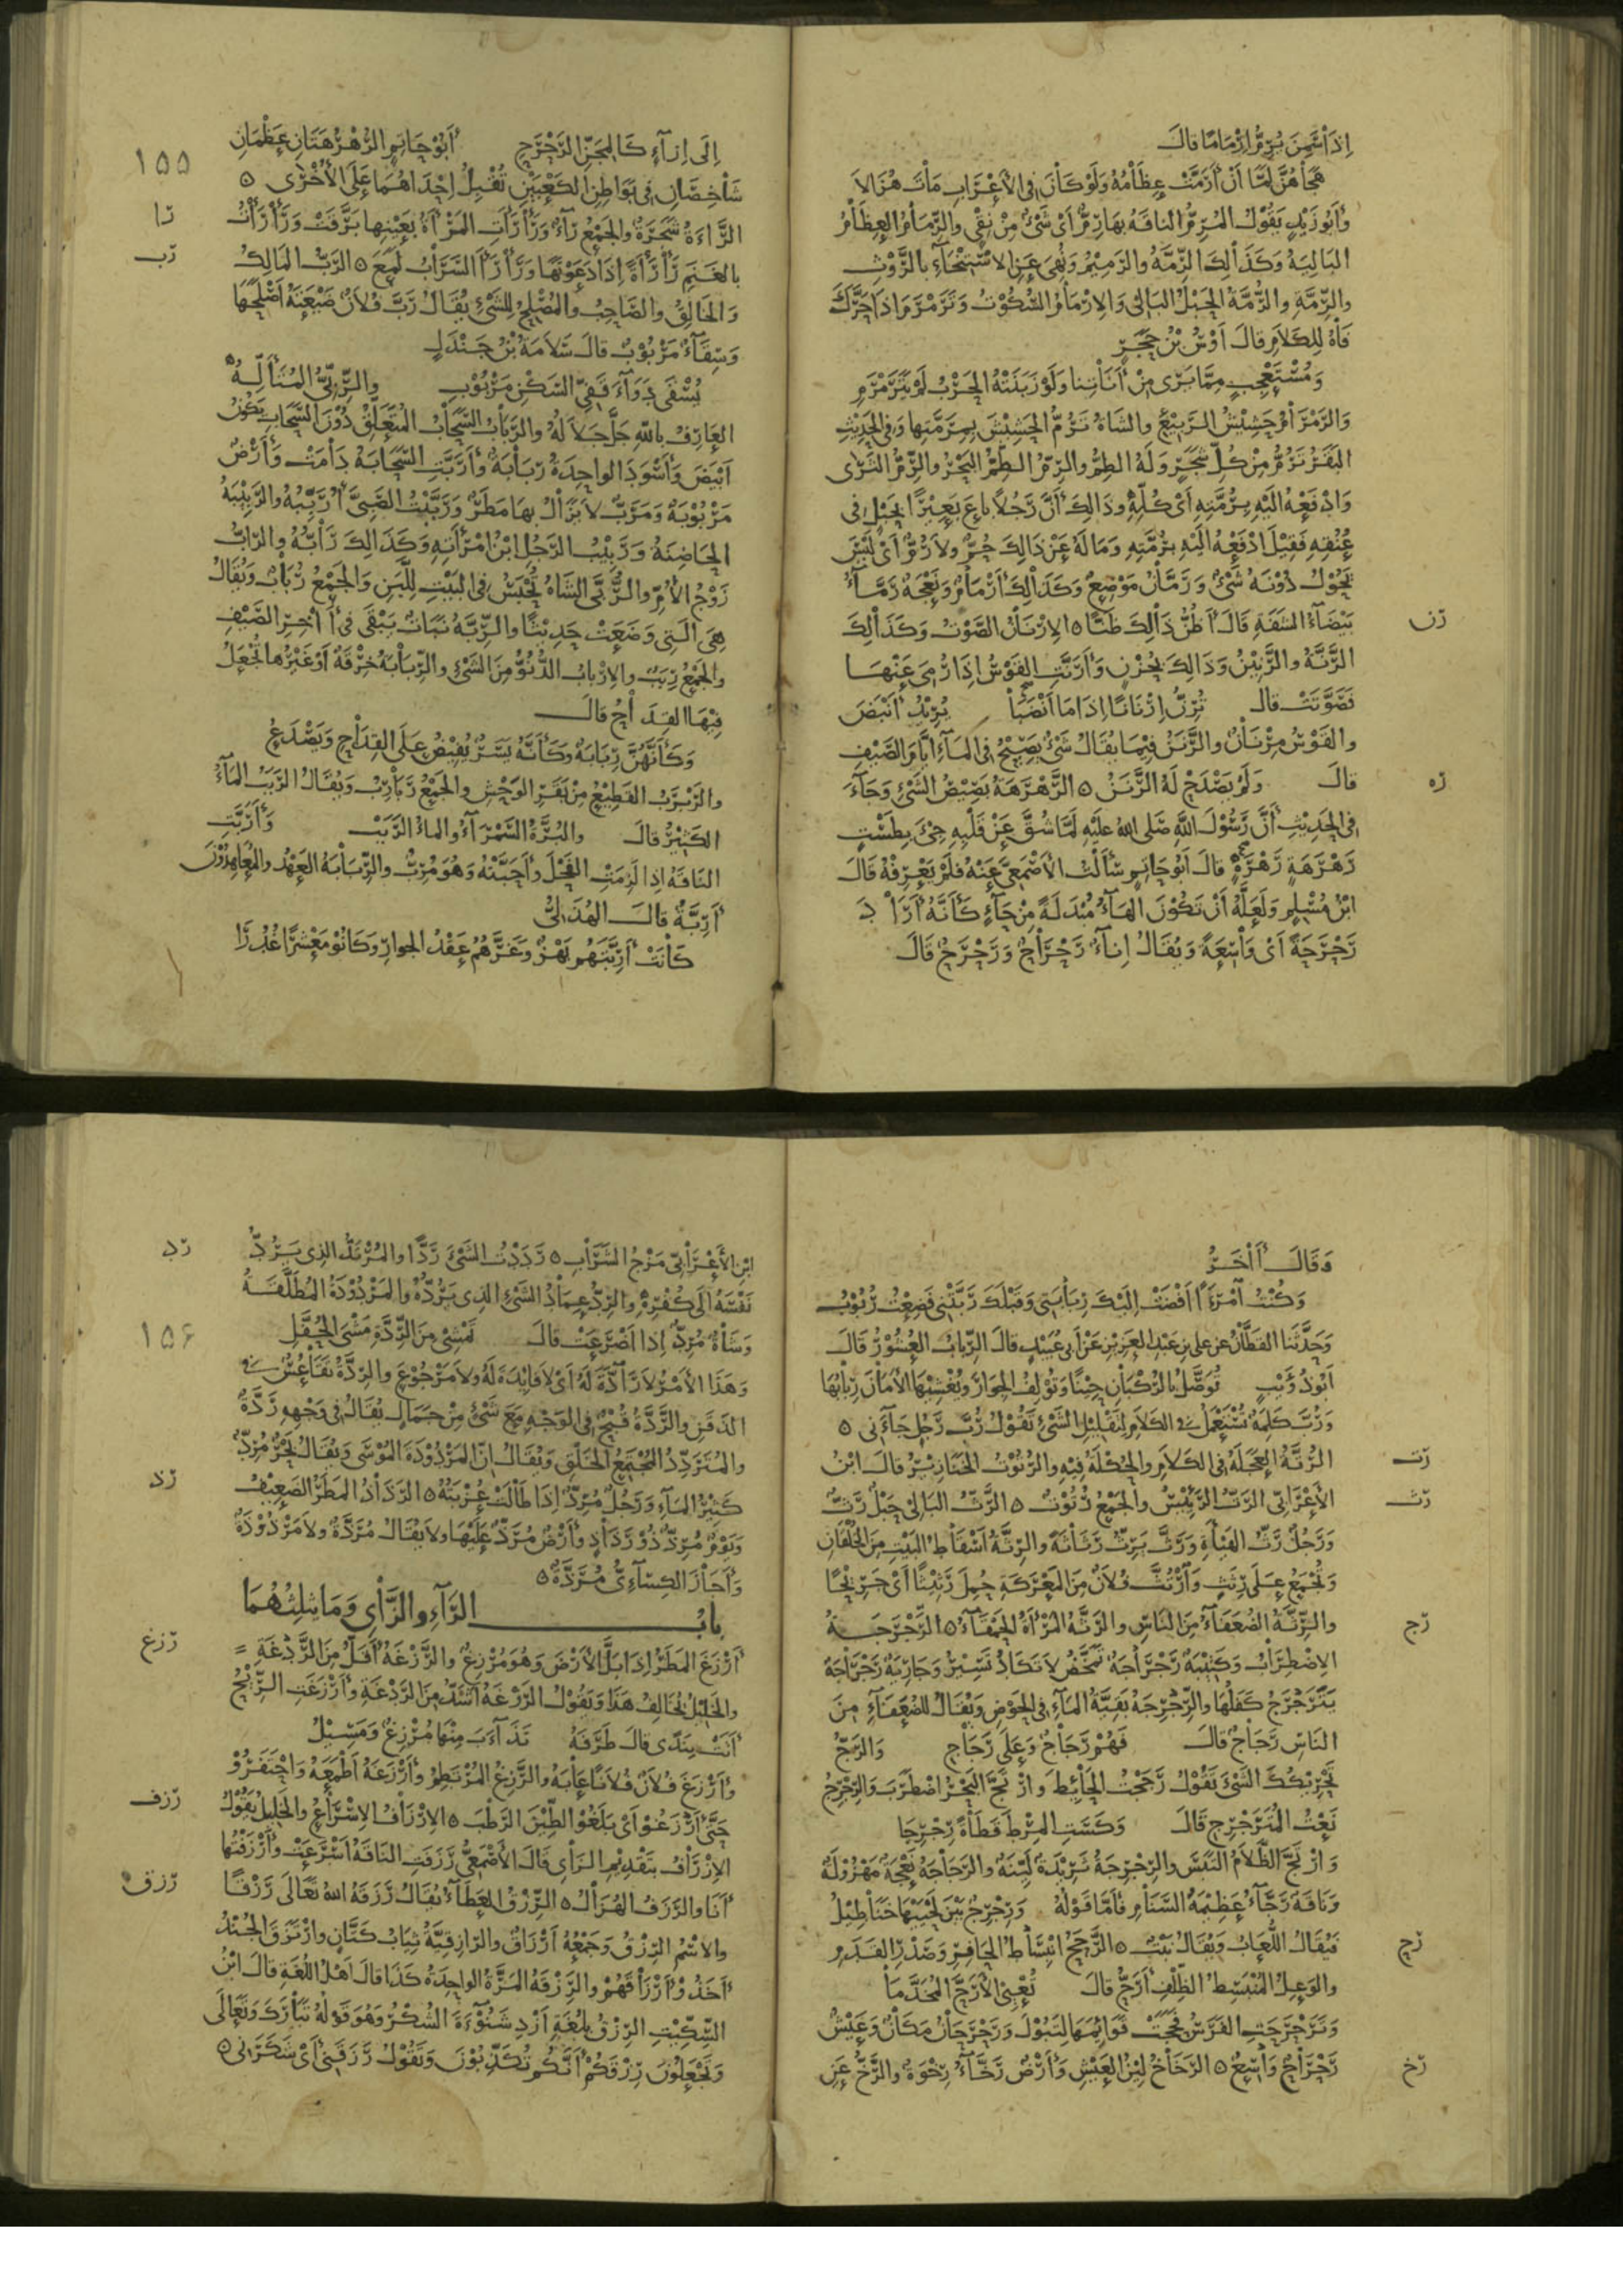 إِذَا سَمِنَ يُرِمُّ إِرْمَامًا قَالَ
هَجَاهُنَّ لَمَّا أَنْ أَرَمَّتْ عِظَامُهُ وَلَوْ كَانَ فِي الأَعْرَابِ مَاتَ هُزَالاَ
وَأَبُو زَيْدٍ يَقُوْلُ المُرِمُّ النَّاقَةُ بِهَا رِمٌّ أَىْ شَىْءٌ مِنْ نِقْىٍ وَالرِّمَامُ العِظَامُ
البَالِيَةُ وَكَذَالِكَ الرِّمَّةُ وَالرَّمِيْمُ وَنُهِيَ عَنِ الاسْتِنْجَآءِ بِالرَّوْثِ
وَالرِّمَّةِ وَالرُّمَّةُ الحَبْلُ البَالِى وَالإِرْمَامُ السُّكُوْتُ وَتَرَمْرَمَ إِذَا حَرَّكَ
فَاهُ لِلكَلاَمِ قَالَ أَوْسُ بْنُ حَجَرٍ
وَمُسْتَعْجِبٍ مِمَّا يَرَى مِنْ أَنَاتِنَا وَلَوْ زَبَنَتْهُ الحَرْبُ لَمْ يَتَرَمْرَمِ
وَالرَّمْرَامُ حَشِيْشُ الرَّبِيْعِ وَالشَّاةُ تَرُمُّ الحَشِيْشَ بِمِرَمَّتِهَا وَفِى الحَدِيْثِ
البَقَرُ تَرُمُّ مِنْ كُلِّ شَجَرٍ وَلَهُ الطِّمُّ وَالرِّمُّ الطِّمُّ البَحْرُ وَالرِّمُّ الثَّرَى
وَادْفَعْهُ إِلَيْهِ بِرُمَّتِهِ أَىْ كُلِّهِ وَذَالِكَ أَنَّ رَجُلاً بَاعَ بَعِيْرًا بِحَبْلٍ فِى
عُنُقِهِ فَقِيْلَ ادْفَعْهُ إِلَيْهِ بِرُمَّتِهِ وَمَا لَهُ عَنْ ذَالِكَ حُمٌّ وَلاَ رُمٌّ أَىْ لَيْسَ
يَحُوْلُ دُوْنَهُ شَىْءٌ وَرَمَّانُ مَوْضِعٌ وَكَذَالِكَ أَرْمَامُ وَنَعْجَةٌ رَمَّآءُ
رن
بَيْضَآءُ الشَّفَةِ قَالَ أَظُنُّ ذَالِكَ ظَنًّا ه الإِرْنَانُ الصَّوْتُ وَكَذَالِكَ
الرَّنَّةُ وَالرَّنِيْنُ وَذَالِكَ بِحُزْنٍ وَأَرَنَّتِ القَوْسُ إِذَا رُمِىَ عَنْهَا
فَصَوَّتَتْ قَالَ تُرِنُّ إِرْنَانًا إِذَا مَا أَنْضَبَا يُرِيْدُ أَنْبَضَ
وَالقَوْسُ مِرْنَانٌ وَالرَّنَنُ فِيْمَا يُقَالُ شَىْءٌ يَصِيْحُ فِى المَآءِ أَيَّامَ الصَّيْفِ
ره
قَالَ وَلَمْ يَصْدَحْ لَهُ الرَّنَنُ ه الرَّهْرَهَةُ بَصِيْصُ الشَّىْءِ وَجَآءَ
فِى الحَدِيْثِ أَنَّ رَسُوْلَ اللهِ صَلَّى اللهُ عَلَيْهِ لَمَّا شُقَّ عَنْ قَلْبِهِ جِىْءَ بِطَسْتٍ
رَهْرَهَةٍ رَهْرَهٍ قَالَ أَبُو حَاتِمٍ سَأَلْتُ الأَصْمَعِىَّ عَنْهُ فَلَمْ يَعْرِفْهُ قَالَ
ابْنُ مُسْلِمٍ وَلَعَلَّهُ أَنْ تَكُوْنَ الهَآءُ مُبْدَلَةً مِنْ حَآءٍ كَأَنَّهُ أَرَادَ
رَحْرَحَةً أَىْ وَاسِعَةً وَيُقَالُ إِنَآءٌ رَحْرَاحٌ وَرَحْرَحٌ قَالَ
إِلَى إِزَآءٍ كَالمِجَنِّ الرَّحْرَحِ أَبُوْ حَاتِمٍ الرُّهْرُهَتَانِ عَظْمَانِ
١٥٥
شَاخِصَانِ فِى بَوَاطِنِ الكَعْبَيْنِ تُقْبِلُ إِحْدَاهُمَا عَلَى الأُخْرَى ه
را
الرَّاءَةُ شَجَرَةٌ وَالجَمْعُ رَآءٌ وَرَأْرَأَتِ المَرْأَةُ بِعَيْنِهَا بَرَّقَتْ وَرَأْرَأْتُ
رب
بِالغَنَمِ رَأْرَأَةً إِذَا دَعَوْتَهَا وَرَأْرَأَ السَّرَابُ لَمَعَ ه الرَّبُّ المَالِكُ
وَالخَالِقُ وَالصَّاحِبُ وَالمُصْلِحُ لِلشَّىْءِ يُقَالُ رَبَّ فُلاَنٌ ضَيْعَتَهُ أَصْلَحَهَا
وَسِقَآءٌ مَرْبُوْبٌ قَالَ سَلاَمَةُ بْنُ جَنْدَلٍ
يُسْقَى دَوَآءَ قَفِىِّ السَّكْنِ مَرْبُوْبِ وَالرِّبِّىُّ المُتَأَلِّهُ
العَارِفُ بِاللهِ جَلَّ جَلاَلُهُ وَالرَّبَابُ السَّحَابُ المُتَعَلِّقُ دُوْنَ السَّحَابِ يَكُوْنُ
أَبْيَضَ وَأَسْوَدَ الوَاحِدَةُ رَبَابَةٌ وَأَرَبَّتِ السَّحَابَةُ دَامَتْ وَأَرْضٌ
مَرْبُوْبَةٌ وَمَرَبٌّ لاَ يَزَالُ بِهَا مَطَرٌ وَرَبَّيْتُ الصَّبِىَّ أُرَبِّبُهُ وَالرَّبِيْبَةُ
الحَاضِنَةُ وَرَبِيْبُ الرَّجُلِ ابْنُ امْرَأَتِهِ وَكَذَالِكَ رَابُّهُ وَالرَّابُّ
زَوْجُ الأُمِّ وَالرُّبَّى الشَّاةُ تُحْبَسُ فِى البَيْتِ لِلَّبَنِ وَالجَمْعُ رُبَابٌ وَيُقَالُ
هِىَ الَّتِى وَضَعَتْ حَدِيْثًا وَالرِّبَّةُ نَبَاتٌ يَبْقَى فِى آخِرِ الصَّيْفِ
وَالجَمْعُ رِبَبٌ وَالإِرْبَابُ الدُّنُوُّ مِنَ الشَّىْءِ وَالرِّبَابَةُ خِرْقَةٌ أَوْ غَيْرُهَا تُجْعَلُ
فِيْهَا القِدَاحُ قَالَ
وَكَأَنَّهُنَّ رِبَابَةٌ وَكَأَنَّهُ يَسَرٌ يُفِيْضُ عَلَى القِدَاحِ وَيَصْدَعُ
وَالرَّبْرَبُ القَطِيْعُ مِنْ بَقَرِ الوَحْشِ وَالجَمْعُ رَبَارِبُ وَيُقَالُ الرَّبَبُ المَآءُ
الكَثِيْرُ قَالَ وَالبُرَّةُ السَّمْرَآءُ وَالمَاءُ الرَّبَبْ وَأَرَبَّتِ
النَّاقَةُ إِذَا لَزِمَتِ الفَحْلَ وَأَحَبَّتْهُ وَهُوَ مُرِبٌّ وَالرِّبَابَةُ العَهْدُ وَالمُعَاهِدُوْنَ
أَرِبَّةٌ قَالَ الهُذَلِىُّ
كَانَتْ أَرِبَّتَهُمْ بَهْزٌ وَغَرَّهُمُ عَقْدُ الجِوَارِ وَكَانُوْ مَعْشَرًا غُدُرَا
وَقَالَ آخَرُ
وَكُنْتُ امْرَءًا أَفْضَتْ إِلَيْكَ رِبَابَتِى وَقَبْلَكَ رَبَّتْنِى فَضِعْتُ رُبُوْبُ
وَحَدَّثَنَا القَطَّانُ عَنْ عَلِىِّ بْنِ عَبْدِ العَزِيْزِ عَنْ أَبِى عُبَيْدٍ قَالَ الرِّبَابُ العُشُوْرُ قَالَ
أَبُو ذُؤَيْبٍ تُوَصِّلُ بِالرُّكْبَانِ حِيْنًا وَتُوْلِفُ الجِوَارَ وَتُغْشِيْهَا الأَمَانَ رِبَابُهَا
وَرُبَّ كَلِمَةٌ تُسْتَعْمَلُ فِى الكَلاَمِ لِتَقْلِيْلِ الشَّىْءِ تَقُوْلُ رُبَّ رَجُلٍ جَآءَنِى ه
رت
الرُّتَّةُ العَجَلَةُ فِى الكَلاَمِ وَالحُكْلَةُ فِيْهِ وَالرُّتُوْتُ الخَنَازِيْرُ قَالَ ابْنُ
رث
الأَعْرَابِىِّ الرَّتُّ الرَّئِيْسُ وَالجَمْعُ رُتُوْتٌ ه الرَّثُّ البَالِى حَبْلٌ رَثٌّ
وَرَجُلٌ رَثُّ الهَيْأَةِ وَرَثَّ يَرِثُّ رَثَاثَةً وَالرِّثَّةُ أَسْقَاطُ البَيْتِ مِنَ الخُلْقَانِ
وَتُجْمَعُ عَلَى رِثَثٍ وَارْتُثَّ فُلاَنٌ مِنَ المَعْرَكَةِ حُمِلَ رَثِيْثًا أَىْ جَرِيْحًا
رج
وَالرِّثَّةُ الضُّعَفَآءُ مِنَ النَّاسِ وَالرِّثَّةُ المَرْأَةُ الحَمْقَآءُ ه الرَّجْرَجَةُ
الاِضْطِرَابُ وَكَتِيْبَةٌ رَجْرَاجَةٌ تَمَخَّضُ لاَ تَكَادُ تَسِيْرُ وَجَارِيَةٌ رَجْرَاجَةٌ
يَتَرَجْرَجُ كَفَلُهَا وَالرِّجْرِجَةُ بَقِيَّةُ المَآءِ فِى الحَوْضِ وَيُقَالُ لِلضُّعَفَآءِ مِنَ
النَّاسِ رَجَاجٌ قَالَ فَهُمْ رَجَاجٌ وَعَلَى رَجَاجِ وَالرَّجُّ
تَحْرِيْكُكَ الشَّىْءَ تَقُوْلُ رَجَجْتُ الحَائِطَ وَارْتَجَّ البَحْرُ اضْطَرَبَ وَالرِّجْرِجُ
نَعْتُ المُتَرَجْرِجِ قَالَ وَكَسَتِ المِرْطَ قَطَاةً رِجْرِجَا
وَارْتَجَّ الظَّلاَمُ الْتَبَسَ وَالرِّجْرِجَةُ ثَرِيْدَةٌ لَيِّنَةٌ وَالرَّجَاجَةُ نَعْجَةٌ مَهْزُوْلَةٌ
وَنَاقَةٌ رَجَّآءُ عَظِيْمَةُ السَّنَامِ فَأَمَّا قَوْلُهُ وَرِجْرِجٌ بَيْنَ لَحْيَيْهَا خَنَاطِيْلُ
رح
فَيُقَالُ اللُّعَابُ وَيُقَالُ نَبْتٌ ه الرَّحَحُ انْبِسَاطُ الحَافِرِ وَصَدْرِ القَدَمِ
وَالوَعِلُ المُنْبَسِطُ الظِّلْفِ أَرَحُّ قَالَ تُعْيِى الأَرَحَّ المُخَدَّمَا
وَتَرَحْرَحَتِ الفَرَسُ فَحَّجَتْ قَوَائِمَهَا لِتَبُوْلَ وَرَحْرَحَانُ مَكَانٌ وَعَيْشٌ
رخ
رَحْرَاحٌ وَاسِعٌ ه الرَّخَاخُ لِيْنُ العَيْشِ وَأَرْضٌ رَخَّآءُ رِخْوَةٌ وَالرَّخُّ عَنِ
رد
ابْنِ الأَعْرَابِىِّ مَزْجُ الشَّرَابِ ه رَدَدْتُ الشَّىْءَ رَدًّا وَالمُرْتَدُّ الَّذِى يَرُدُّ
نَفْسَهُ إِلَى كُفْرِهِ وَالرِّدُّ عِمَادُ الشَّىْءِ الَّذِى يَرُدُّهُ وَالمَرْدُوْدَةُ المُطَلَّقَةُ
١٥٦
وَشَاةٌ مُرِدٌّ إِذَا أَضْرَعَتْ قَالَ تَمْشِى مِنَ الرِّدَّةِ مَشْىَ الحُفَّلِ
وَهَذَا الأَمْرُ لاَ رَآدَّةَ لَهُ أَىْ لاَ فَايِدَةَ لَهُ وَلاَ مَرْجُوْعَ وَالرِّدَّةُ تَقَاعُسٌ فِى
الذَّقَنِ وَالرَّدَّةُ قُبْحٌ فِى الوَجْهِ مَعَ شَىْءٍ مِنْ جَمَالٍ يُقَالُ فِى وَجْهِهِ رَدَّةٌ
وَالمُتَرَدِّدُ المُجْتَمِعُ الخَلْقِ وَيُقَالُ إِنَّ المَرْدُوْدَةَ المُوْسَى وَيُقَالُ بَحْرٌ مُرِدٌّ
رذ
كَثِيْرُ المَآءِ وَرَجُلٌ مُرِدٌّ إِذَا طَالَتْ عُزْبَتُهُ ه الرَّذَاذُ المَطَرُ الضَّعِيْفُ
وَيَوْمٌ مُرِذٌّ ذُوْ رَذَاذٍ وَأَرْضٌ مُرَذٌّ عَلَيْهَا وَلاَ يُقَالُ مُرَذَّةٌ وَلاَ مَرْذُوْذَةٌ
وَأَجَازَ الكِسَآءِىُّ مُرَذَّةٌ ه
بَابُ الرَّآءِ وَالزَّاىِ وَمَا يَثْلِثُهُمَا
رزغ
أَرْزَغَ المَطَرُ إِذَا بَلَّ الأَرْضَ وَهُوَ مُرْزِغٌ وَالرَّزْغَةُ أَقَلُّ مِنَ الرَّدْغَةِ =
وَالخَلِيْلُ يُخَالِفُ هَذَا وَيَقُوْلُ الرَّزْغَةُ أَشَدُّ مِنَ الرَّدْغَةِ وَأَرْزَغَتِ الرِّيْحُ
أَتَتْ بِنَدًى قَالَ طَرَفَةُ تَذَآءَبَ مِنْهَا مُرْزِغٌ وَمُسِيْلُ
وَأَرْزَغَ فُلاَنٌ فُلاَنًا عَابَهُ وَالرَّزِغُ المُرْتَطِمُ وَأَرْزَغَهُ أَطْمَعَهُ وَاحْتَفَرُوْ
رزف
حَتَّى أَرْزَغُوْ أَىْ بَلَغُوْ الطِّيْنَ الرَّطْبَ ه الإِرْزَافُ الإِسْرَاعُ وَالخَلِيْلُ يَقُوْلُ
الإِزْرَافُ بِتَقْدِيْمِ الزَّاىِ قَالَ الأَصْمَعِىُّ رَزَفَتِ النَّاقَةُ أَسْرَعَتْ وَأَرْزَفْتُهَا
رزق
أَنَا وَالرَّزَفُ الهُزَالُ ه الرِّزْقُ العَطَآءُ يُقَالُ رَزَقَهُ اللهُ تَعَالَى رَزْقًا
وَالاسْمُ الرِّزْقُ وَجَمْعُهُ أَرْزَاقٌ وَالرَّازِقِيَّةُ ثِيَابُ كَتَّانٍ وَارْتَزَقَ الجُنْدُ
أَخَذُوْ أَرْزَاقَهُمْ وَالرَّزْقَةُ المَرَّةُ الوَاحِدَةُ كَذَا قَالَ أَهْلُ اللُّغَةِ قَالَ ابْنُ
السِّكِّيْتِ الرِّزْقُ بِلُغَةِ أَزْدِ شَنُوْءَةَ الشُّكْرُ وَهُوَ قَوْلُهُ تَبَارَكَ وَتَعَالَى
وَتَجْعَلُوْنَ رِزْقَكُمْ أَنَّكُمْ تُكَذِّبُوْنَ وَتَقُوْلُ رَزَقَنِى أَىْ شَكَرَنِى ه